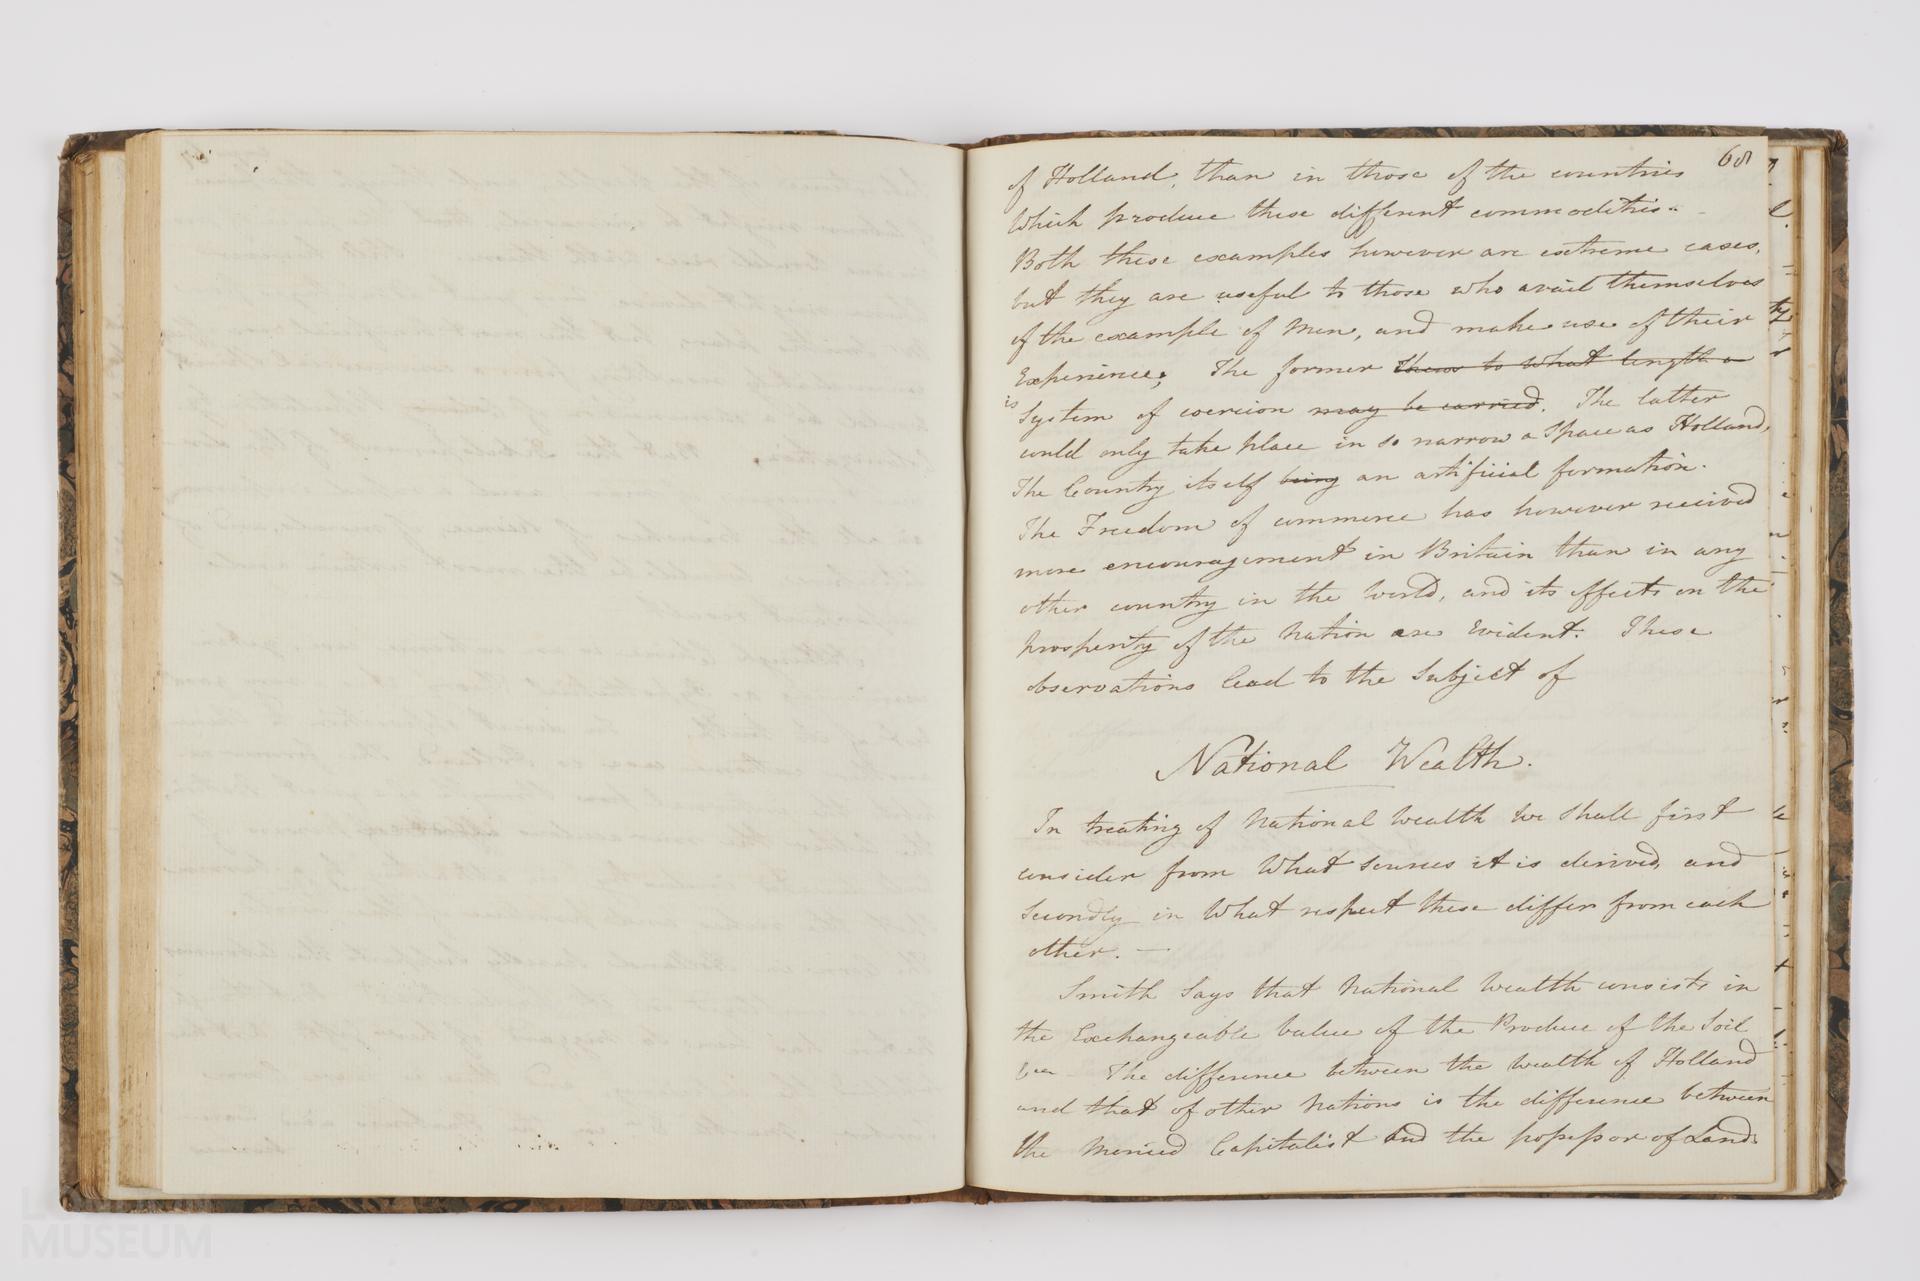 68
of Holland, than in those of the countries
Which produce these different commodities.
Both these examples however are extreme cases,
but they are useful to those who avail themselves
of the example of Men, and make use of their
Experience; The former shews to what length a
is
System of coercion may be carried. The latter
could only take place in so narrow a Space as Holland,
The Country itself being an artificial formation.
The Freedom of commerce has however received
more encouragement in Britain than in any
other country in the World, and its effects on the
prosperity of the Nation are Evident. These
observations lead to the Subject of
National Wealth.
In treating of National Wealth we shall first
consider from What sources it is derived, and
Secondly in What respect these differ from each
other. —
Smith Says that National Wealth consists in
the Exchangeable Value of the Produce of the Soil
The difference between the wealth of Holland
and that of other Nations is the difference between
the Monied Capitalist and the possessor of Land
LONDON
MUSEUM